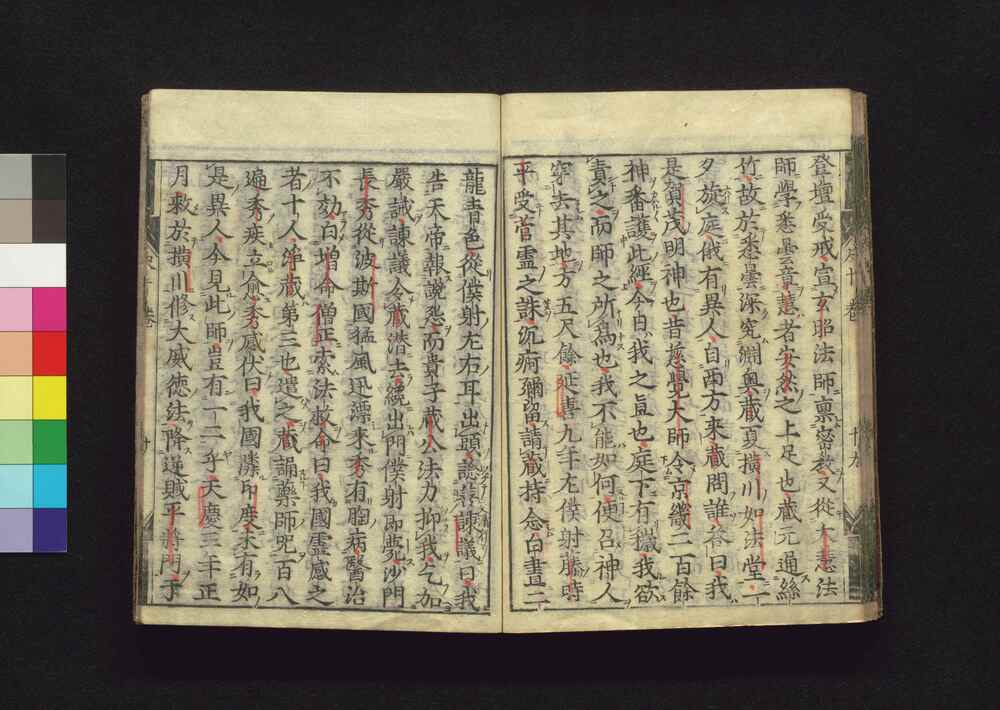 登壇受戒宣玄昭法師稟密教又從大慧法
師學悉曇音慧者安然之上足也藏元通絲
竹故於悉曇深究淵奧藏夏横川如法堂一
夕旋庭俄有異人自西方來藏問誰答曰我
是賀茂明神也昔慈覺大師令京畿二百餘
神番護此經今日我之直也庭下有穢我欲
責之而師之所爲也我不能如何便召神人
穿去其地方五尺餘延喜九年左僕射藤時
平受菅靈之誅沉痾彌留請藏持念白晝二
龍青色從僕射左右耳出頭語善諫議曰我
告天帝報說怨而貴子藏公法力抑我乞加
嚴誡諫議令藏潜去纔出門僕射即薨沙門
長秀從波斯國猛風迅漂來秀有胸病醫治
不効白增命僧正索法救命曰我國靈感之
者十人淨藏第三也遣之藏誦藥師呪百八
遍秀疾立愈秀感伏曰我國隣印度未有如
是異人今見此師豈有一二乎天慶三年正
月敕於横川修大威德法降逆賊平將門于